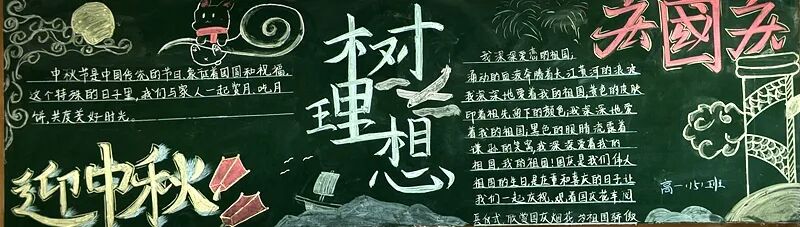 中秋节是中国传统的节日,象征着团圆和祝福。
这个特殊的日子里,我们与家人一起赏月、吃月
饼,共度美好时光。
迎中秋
树
理
想
我深深爱着的祖国,
涌动的血液奔腾着大江黄河的浪波
我深深地爱着我的祖国,黄色的皮肤
印着祖先留下的颜色;我深深地爱
着我的祖国,黑色的眼睛流露着
谦逊的笑窝,我深深爱着我的
祖国,我的祖国!国庆是我们伟人
祖国的生日,是庄重和喜庆的日子让
我们一起庆祝,观看国庆阅
兵仪式,欣赏国庆烟花,为祖国骄傲
庆國庆
高一(5)班